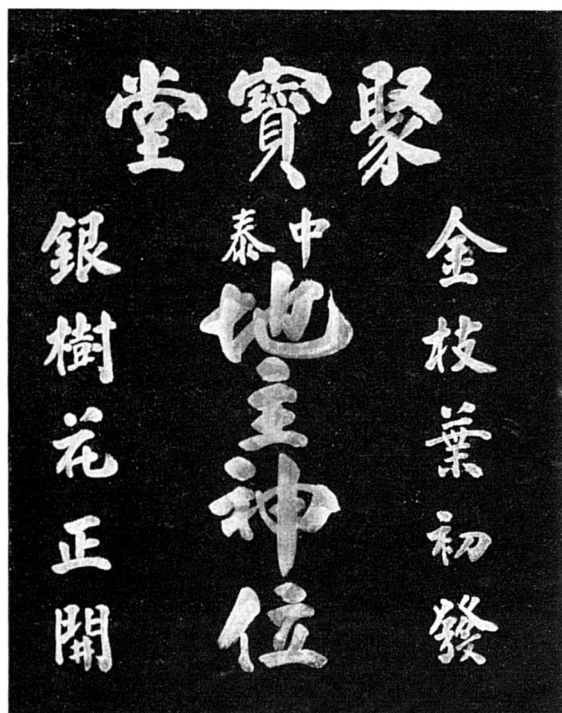 聚寶堂
金枝葉初發
中泰
地主神位
銀樹花正開